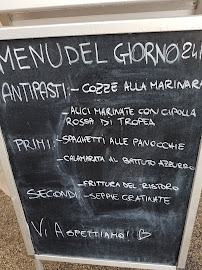 MENU DEL GIORNO 24
ANTIPASTI: - COZZE ALLA MARINARA
- ALICI MARINATE CON CIPOLLA
ROSSA DI TROPEA
PRIMI: - SPAGHETTI ALLE PANOCCHIE
- CALAMARATA AL BATTUTO AZZURRO
- FRITTURA DEL RISTORO
SECONDI: - SEPPIE GRATINATE
VI ASPETTIAMO!